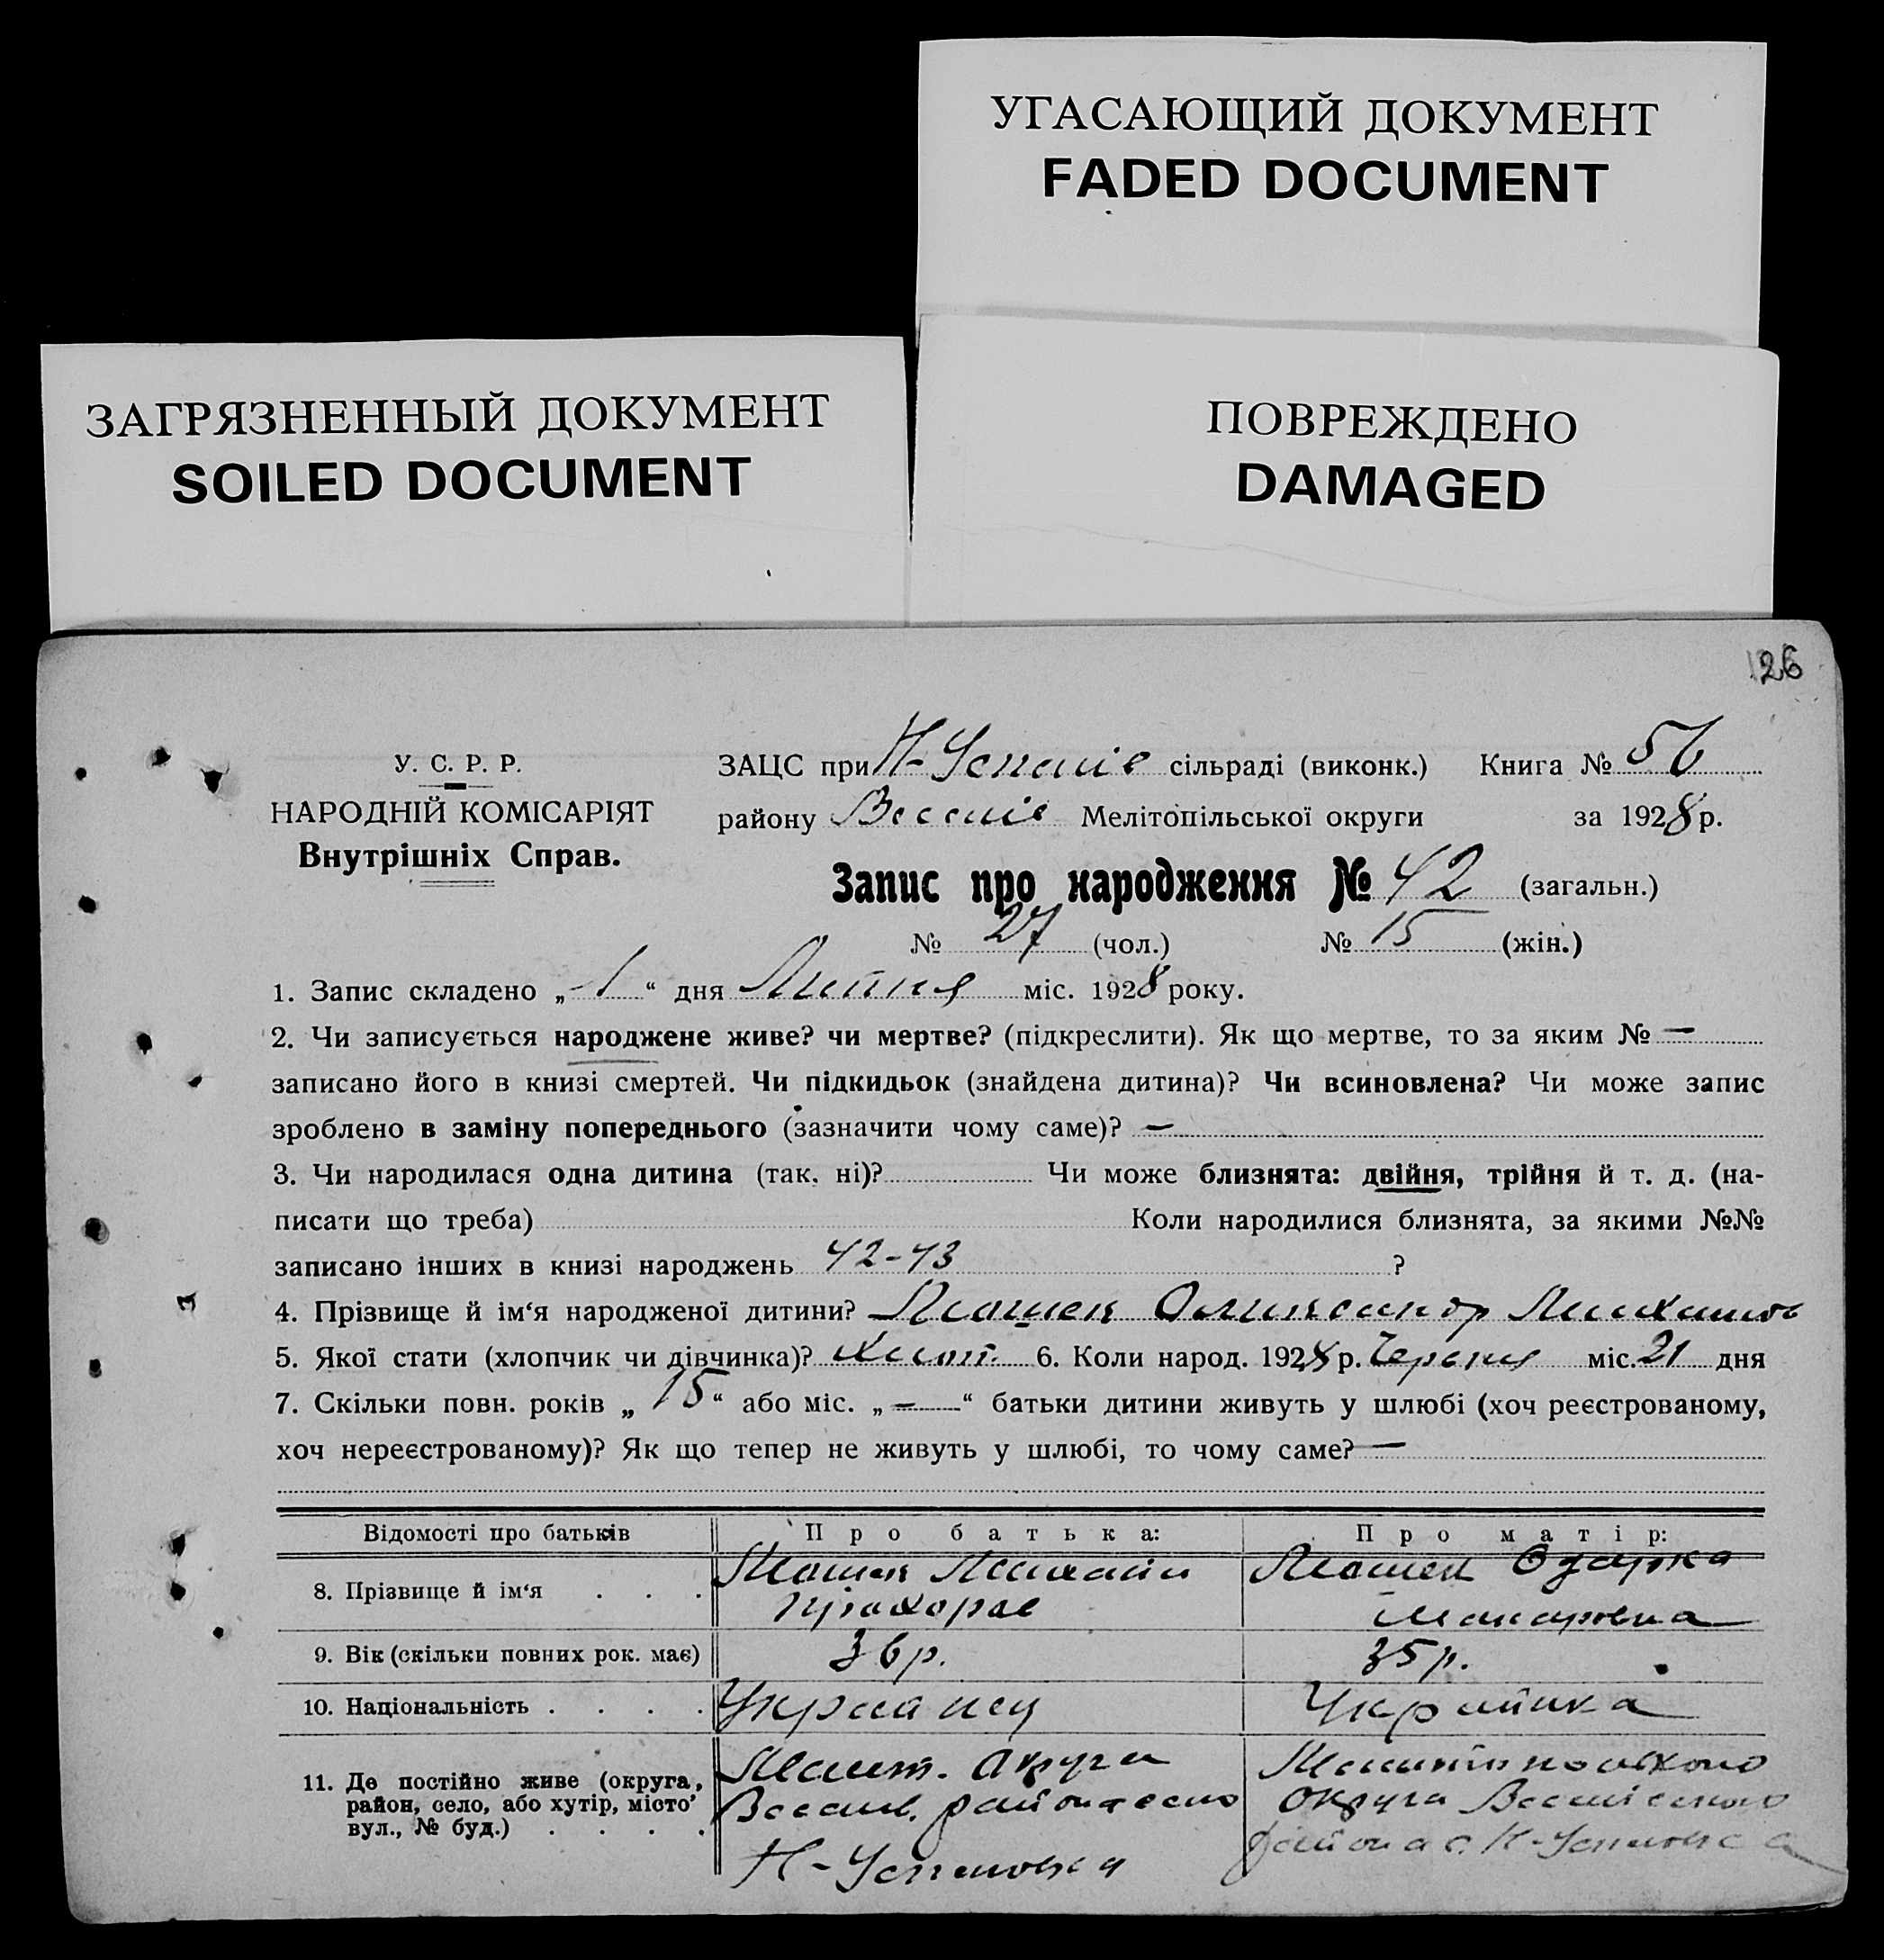 УГАСАЮЩИЙ ДОКУМЕНТ
FADED DOCUMENT
ЗАГРЯЗНЕННЫЙ ДОКУМЕНТ
SOILED DOCUMENT
ПОВРЕЖДЕНО
DAMAGED
126
У. С. Р. Р.
НАРОДНІЙ КОМІСАРІЯТ
Внутрішніх Справ.
ЗАЦС при Н-Успенів сільраді (виконк.) Книга № 56
району Веселів Мелітопільської округи за 1928 р.
Запис про народження № 42 (загальн.)
№ 27 (чол.) № 15 (жін.)
1. Запис складено „1“ дня Липня міс. 1928 року.
2. Чи записується народжене живе? чи мертве? (підкреслити). Як що мертве, то за яким № —
записано його в книзі смертей. Чи підкидьок (знайдена дитина)? Чи всиновлена? Чи може запис
зроблено в заміну попереднього (зазначити чому саме)? —
3. Чи народилася одна дитина (так, ні)? Чи може близнята: двійня, трійня й т. д. (на-
писати що треба) Коли народилися близнята, за якими №№
записано інших в книзі народжень 42-43 ?
4. Прізвище й ім‘я народженої дитини? Олександр
5. Якої стати (хлопчик чи дівчинка)? Хлоп. 6. Коли народ. 1928 р. Червня міс. 21 дня
7. Скільки повн. років „15“ або міс. „—“ батьки дитини живуть у шлюбі (хоч реєстрованому,
хоч нереєстрованому)? Як що тепер не живуть у шлюбі, то чому саме? —
Відомості про батьків Про батька: Про матір:
8. Прізвище й ім‘я . . . Михайло Одарка
Прохоров Макаровна
9. Вік (скільки повних рок. має) 36 р. 35 р.
10. Національність . . . . Українець Українка
11. Де постійно живе (округа, район, село, або хутір, місто’ вул., № буд.) . . . .
Меліт. округи
Веселів. района село
Н-Успеновка
округи Веселівського
района с. Н-Успеновка